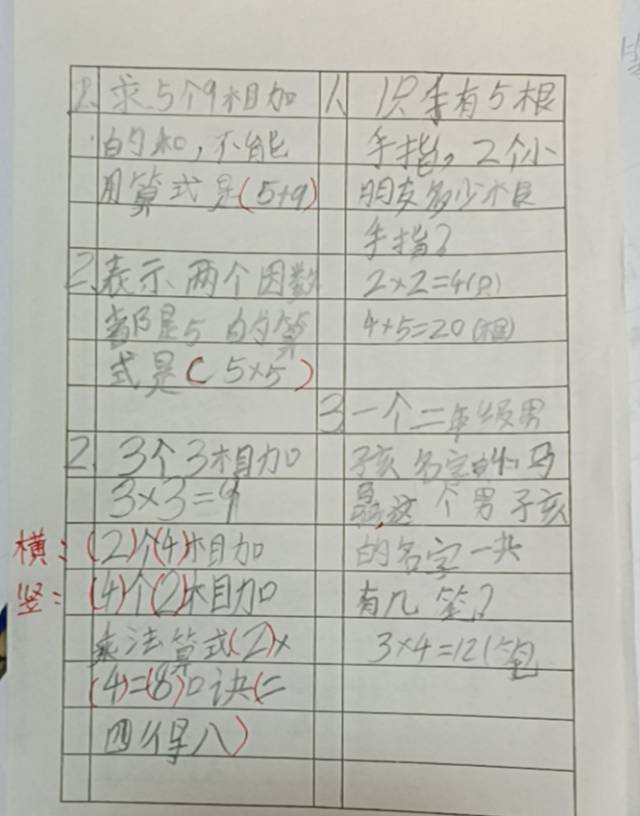 1. 求5个9相加
的和,不能
用算式是(5+9)
2. 表示两个因数
都是5的算
式是(5×5)
2. 3个3相加
3×3=9
横:(2)个(4)相加
竖:(4)个(2)相加
乘法算式(2)×
(4)=(8)口诀(二
四得八)
1. 1只手有5根
手指,2个小
朋友多少根
手指?
2×2=4(只)
4×5=20(根)
3. 一个二年级男
孩名字叫马
这个男子孩
的名字一共
有几笔?
3×4=12(笔